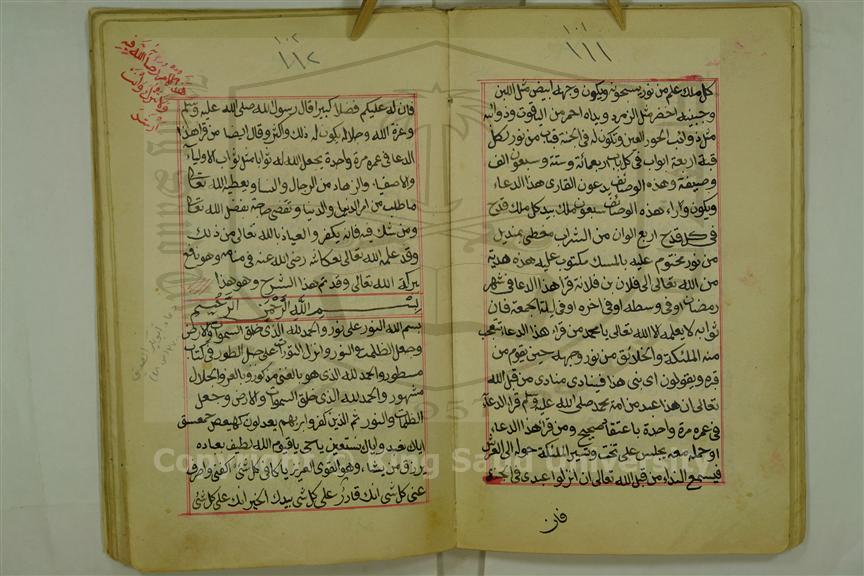 ١٠١
١١١
كل ملك علم من نور يسبحونه ويكون وجهه ابيض مثل اللبن
وجبينه اخضر مثل الزمرد ويداه احمر من الياقوت وذوائبه
مثل ذوائب الحور العين وتكون له في الجنة قبة من نور لكل
قبة اربعة ابواب في كل باب اربعمائة وستة وسبعون الف
وصيفة وهذه الوصائف يدعون القارئ هذا الدعاء
ويكون وراء هذه الوصائف سبعون ملك بيد كل ملك قدح
في كل قدح اربع الوان من الشراب مغطى بمنديل
من نور مختوم عليه بالمسك مكتوب عليه هذه هدية
من الله تعالى الى فلان بن فلانة قرا هذا الدعا في شهر
رمضان او في وسطه او في اخره او في ليلة الجمعة فان
ثوابه لا يعلمه الا الله تعالى يا محمد من قراء هذا الدعا تتعجب
منه الملئكة والخلائق من نور وجهه حين يقوم من
قبره ويقولون اي نبي هذا فينادي منادي من قبل الله
تعالى ان هذا عبد من امة محمد صلى الله عليه وسلم قرا الدعاء
في عمره مرة واحدة باعتقاد صحيح ومن قراء هذا الدعاء
او حمله معه يجلس على تخت وتسير الملئكة حوله الى العرش
فيسمع النداء من قبل الله تعالى ان انزلوا عبدي في الجنة
فان
١٠٢
١١٢
فان له عليكم فضلا كبيرا قال رسول الله صلى الله عليه وسلم
وعزة الله وجلاله يكون له ذلك واكثر وقال ايضا من قرا هذا
الدعا في عمره مرة واحدة يجعل الله له ثوابا مثل ثواب الاولياء
والاصفياء والزهاد من الرجال والنساء ويعطيه الله تعالى
ما طلب من امر الدين والدنيا وتقضى حاجته بفضل الله تعالى
ومن شك فيه فانه يكفر والعياذ بالله تعالى من ذلك
وقد علمه الله تعالى رضي الله عنه في منامه وهو نافع
ببركة الله تعالى وقد تم هذا الشرح وهو هذا
بسم الله الرحمن الرحيم
بسم الله النور على نور والحمد لله الذي خلق السموات والارض
وجعل الظلمات والنور وانزل التورات على جبل الطور في كتاب
مسطور والحمد لله الذي هو بالغنى مذكور وبالعز والجلال
مشهور والحمد لله الذي خلق السموات والارض وجعل
الظلمات والنور ثم الذين كفروا بربهم يعدلون كهيعص حمعسق
اياك نعبد واياك نستعين يا حي يا قيوم الله لطيف بعباده
يرزق من يشاء وهو القوي العزيز يا كافي كل شئ اكفني واصرف
عني كل شئ انك قادر على كل شئ بيدك الخير انك على كل شئ
Copyright © King Saud University
1957